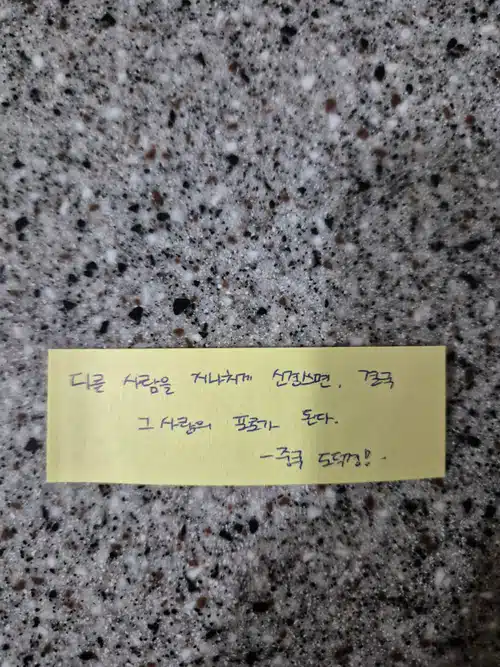 다른 사람을 지나치게 신경쓰면, 결국
그 사람의 포로가 된다.
- 중국 도덕경! -